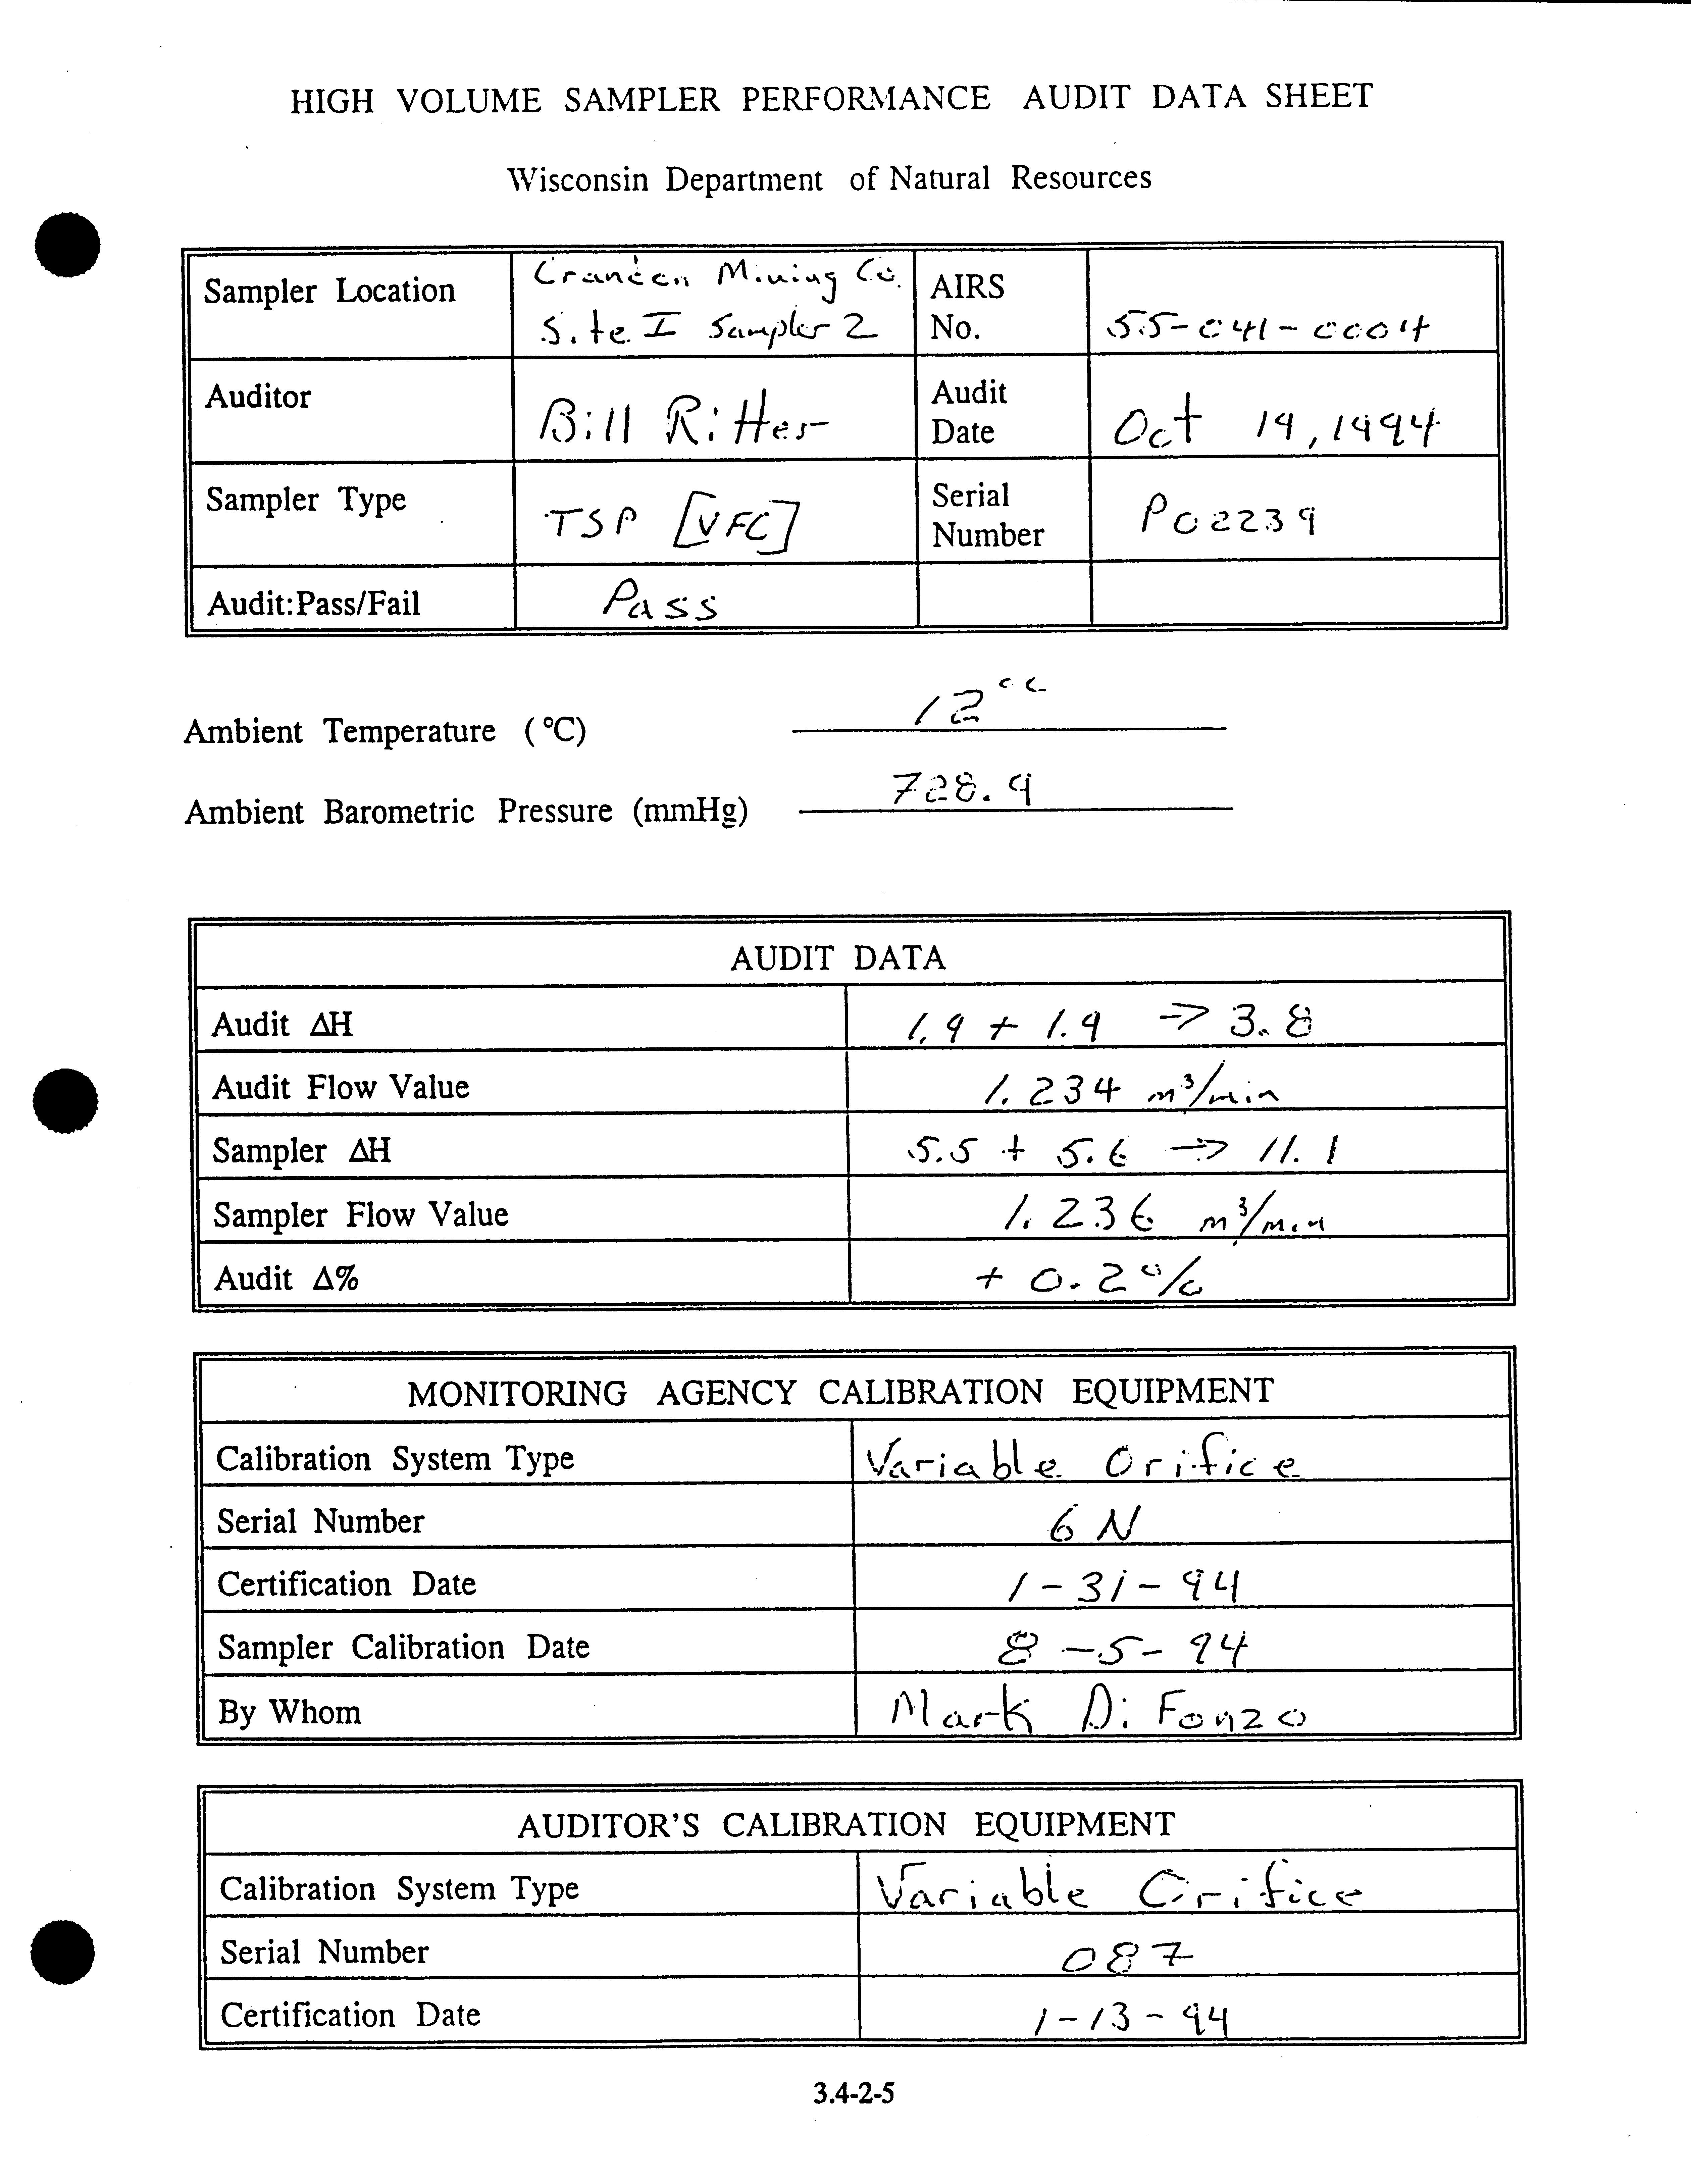 HIGH VOLUME SAMPLER PERFORMANCE AUDIT DATA SHEET
Wisconsin Department of Natural Resources
Sampler Location Crandon Mining Co. Site I Sampler 2 AIRS No. 55-041-0004
Auditor Bill Ritter Audit Date Oct 19, 1994
Sampler Type TSP [VFC] Serial Number P02239
Audit:Pass/Fail Pass
Ambient Temperature (°C) 12°C
Ambient Barometric Pressure (mmHg) 728.9
AUDIT DATA
Audit ΔH 1.9 + 1.9 → 3.8
Audit Flow Value 1.234 m³/min
Sampler ΔH 5.5 + 5.6 → 11.1
Sampler Flow Value 1.236 m³/min
Audit Δ% + 0.2%
MONITORING AGENCY CALIBRATION EQUIPMENT
Calibration System Type Variable Orifice
Serial Number 6N
Certification Date 1-31-94
Sampler Calibration Date 8-5-94
By Whom Mark DiFonzo
AUDITOR'S CALIBRATION EQUIPMENT
Calibration System Type Variable Orifice
Serial Number 087
Certification Date 1-13-94
3.4-2-5